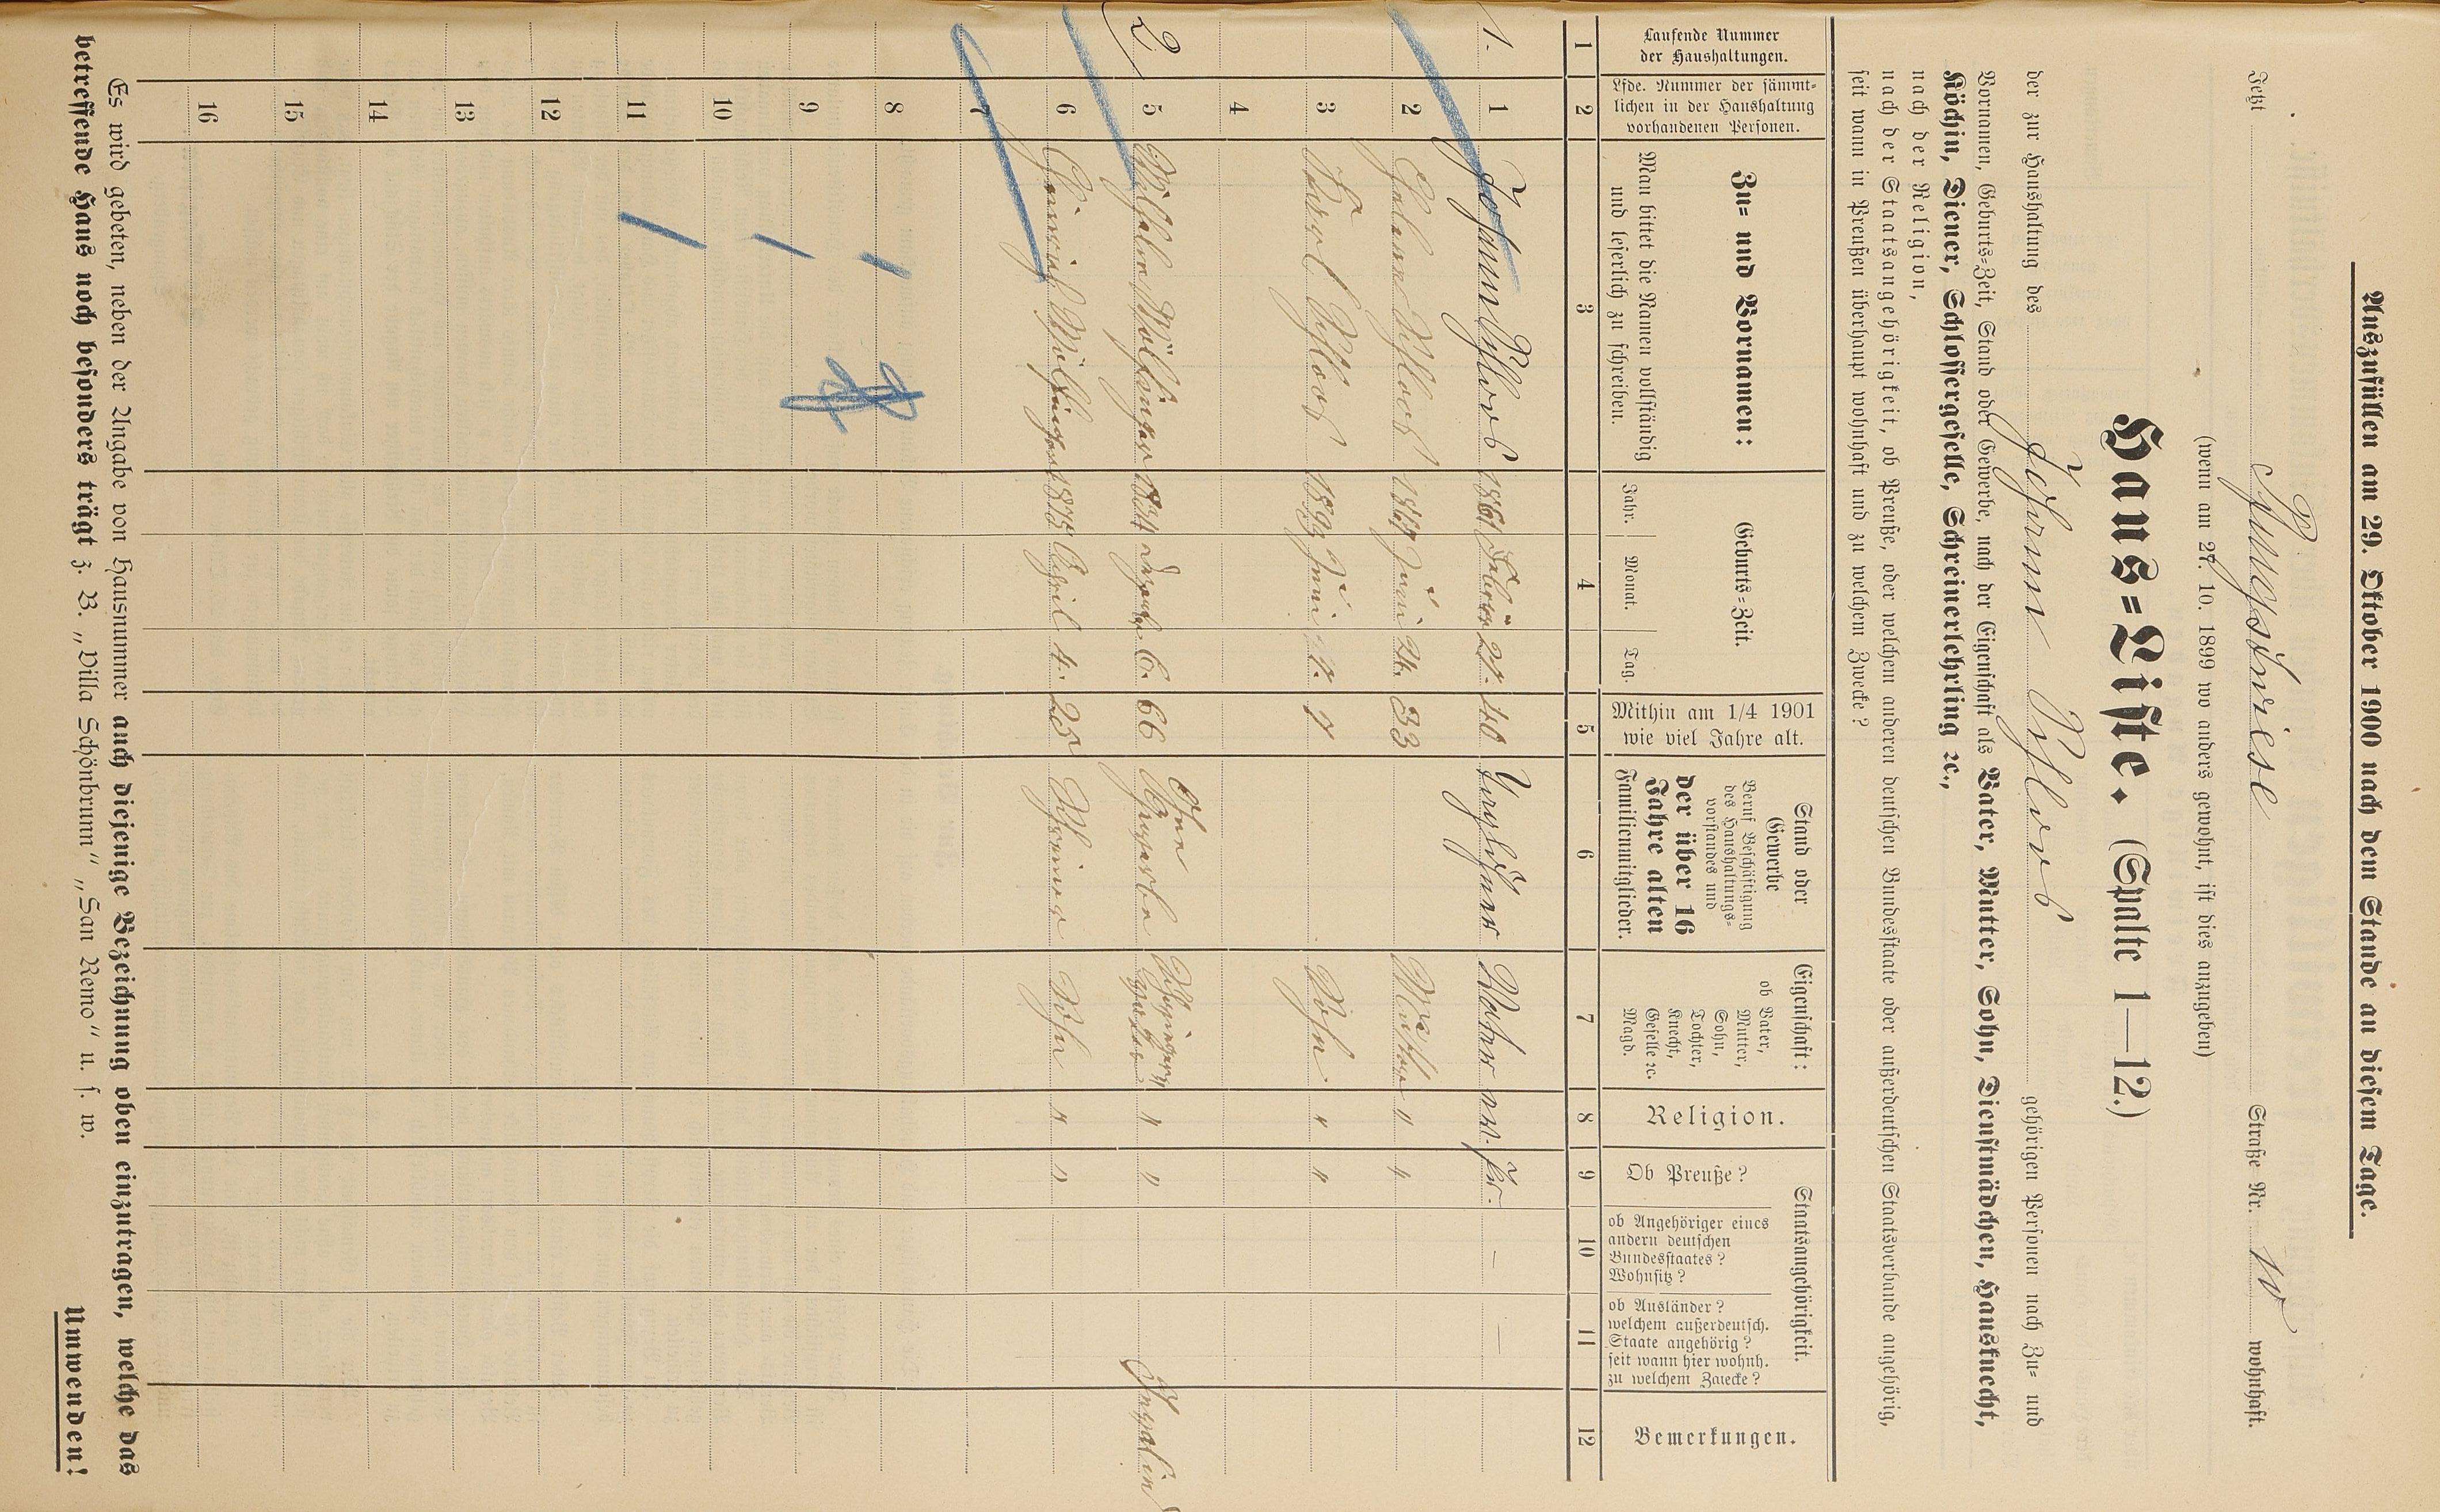 Auszufüllen am 29. Oktober 1900 nach dem Stande an diesem Tage.
Jetzt Springswiese Straße Nr. 10 wohnhaft.
(wenn am 27. 10. 1899 wo anders gewohnt, ist dies anzugeben)
Haus=Liste. (Spalte 1—12.)
der zur Haushaltung des Johann gehörigen Personen nach Zu= und
Vornamen, Geburts=Zeit, Stand oder Gewerbe, nach der Eigenschaft als Vater, Mutter, Sohn, Dienstmädchen, Hausknecht,
Köchin, Diener, Schlossergeselle, Schreinerlehrling ꝛc.,
nach der Religion,
nach der Staatsangehörigkeit, ob Preuße, oder welchem anderen deutschen Bundesstaate oder außerdeutschen Staatsverbande angehörig,
seit wann in Preußen überhaupt wohnhaft und zu welchem Zwecke?
Laufende Nummer
der Haushaltungen.
Lfde. Nummer der sämmt=
lichen in der Haushaltung
vorhandenen Personen.
Zu= und Vornamen:
Man bittet die Namen vollständig
und leserlich zu schreiben.
Geburts=Zeit.
Jahr. Monat. Tag.
Mithin am 1/4 1901
wie viel Jahre alt.
Stand oder
Gewerbe
Beruf Beschäftigung
des Haushaltungs=
vorstandes und
der über 16
Jahre alten
Familienmitglieder.
Eigenschaft:
ob Vater,
Mutter,
Sohn,
Tochter,
Knecht,
Geselle ꝛc.
Magd.
Religion.
Staatsangehörigkeit.
Ob Preuße?
ob Angehöriger eines
andern deutschen
Bundesstaates?
Wohnsitz?
ob Ausländer?
welchem außerdeutsch.
Staate angehörig?
seit wann hier wohnh.
zu welchem Zwecke?
Bemerkungen.
1 2 3 4 5 6 7 8 9 10 11 12
1. 1 Johann 1861 21. 40 Vater ev. pr. — —
2 1867 Juni 24. 33 Mutter " "
3 Karl 1899 Juni Sohn " "
4
2 5 Wilhelm 1834 6. 66 Ohne Gewerbe Schwiegervater " "
6 1875 April 4. 25 Schreiner Sohn " "
7
8
9
10
11
12
13
14
15
16
Es wird gebeten, neben der Angabe von Hausnummer auch diejenige Bezeichnung oben einzutragen, welche das
betreffende Haus noch besonders trägt z. B. „Villa Schönbrunn" „San Remo" u. s. w.
Umwenden!